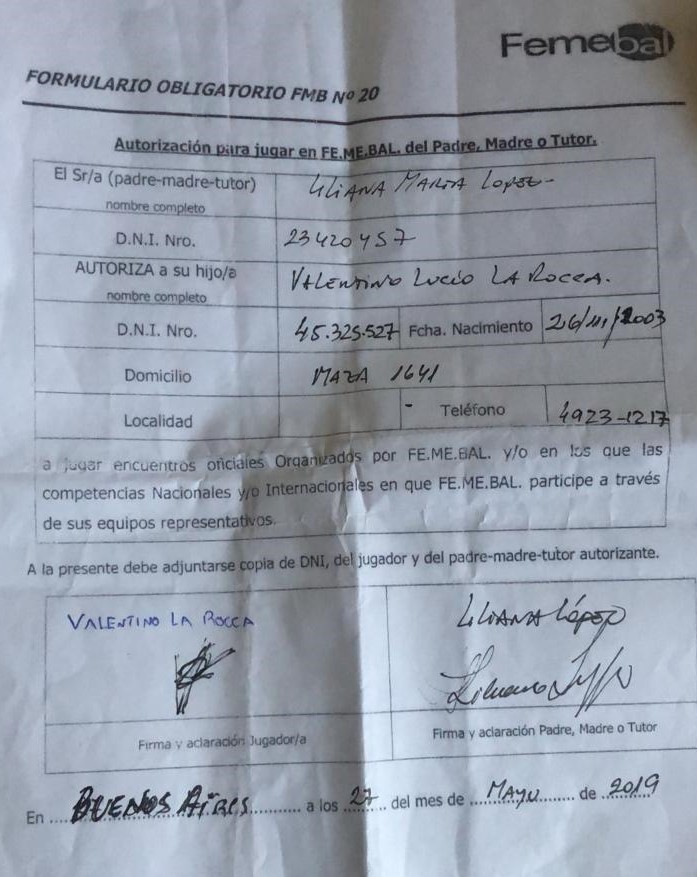 Femebal
FORMULARIO OBLIGATORIO FMB Nº 20
Autorización para jugar en FE.ME.BAL. del Padre, Madre o Tutor.
El Sr/a (padre-madre-tutor) LILIANA MARTA LOPEZ-
nombre completo
D.N.I. Nro. 23420457
AUTORIZA a su hijo/a VALENTINO LUCIO LA ROCCA.
nombre completo
D.N.I. Nro. 45.325.527 Fcha. Nacimiento 26/11/2003
Domicilio MAZA 1641
Localidad - Teléfono 4923-1217
a jugar encuentros oficiales Organizados por FE.ME.BAL. y/o en los que las
competencias Nacionales y/o Internacionales en que FE.ME.BAL. participe a través
de sus equipos representativos.
A la presente debe adjuntarse copia de DNI, del jugador y del padre-madre-tutor autorizante.
VALENTINO LA ROCCA LILIANA LÓPEZ
Firma y aclaración Jugador/a Firma y aclaración Padre, Madre o Tutor
En ....BUENOS AIRES............ a los ..27.... del mes de ....MAYO........ de ..2019....